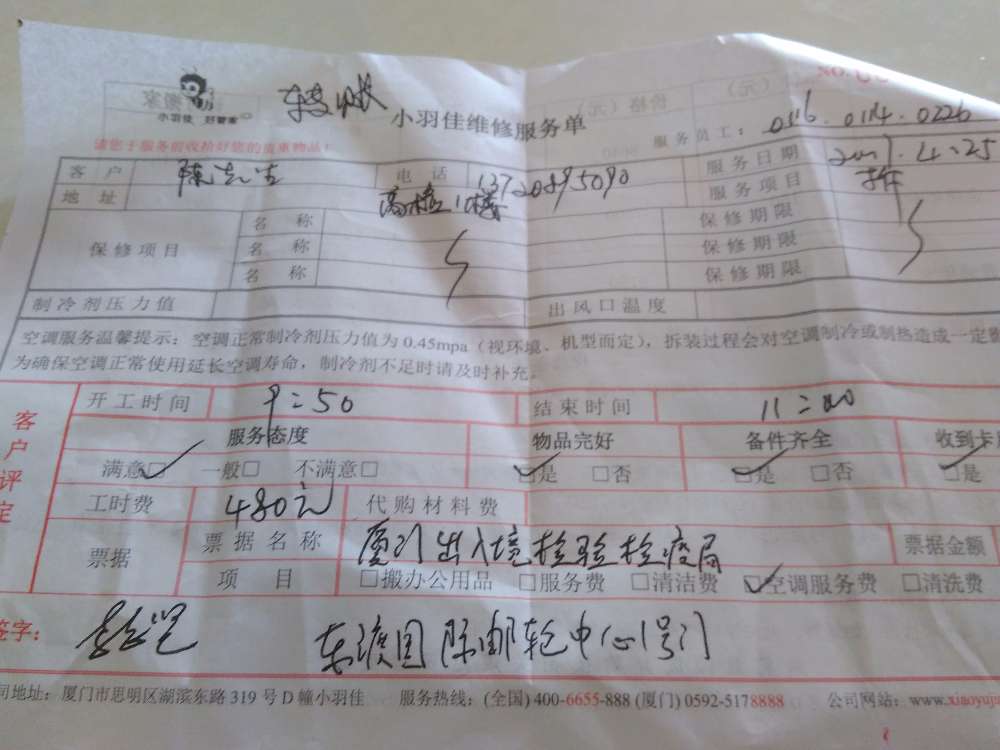 小羽佳 好管家
转帐
小羽佳维修服务单
NO.
请您于服务前收拾好您的贵重物品!
服务员工: 0116.0114.0226
客户 陈先生 电话 13720895090 服务日期 2017.4.25
地址 高检1楼 服务项目 拆
保修项目 名称 保修期限
名称 保修期限
名称 保修期限
制冷剂压力值 出风口温度
空调服务温馨提示: 空调正常制冷剂压力值为 0.45mpa (视环境、机型而定), 拆装过程会对空调制冷或制热造成一定
为确保空调正常使用延长空调寿命, 制冷剂不足时请及时补充。
客户评定
开工时间 9:50 结束时间 11:00
服务态度 物品完好 备件齐全 收到卡
满意☑ 一般□ 不满意□ ☑是 □否 ☑是 □否 ☑是
工时费 480元 代购材料费
票据 票据名称 厦门出入境检验检疫局 票据金额
项目 □搬办公用品 □服务费 □清洁费 ☑空调服务费 □清洗费
签字:
东渡国际邮轮中心1号门
地址: 厦门市思明区湖滨东路 319 号 D 幢小羽佳 服务热线: (全国) 400-6655-888 (厦门) 0592-5178888 公司网站: www.xiaoyuj